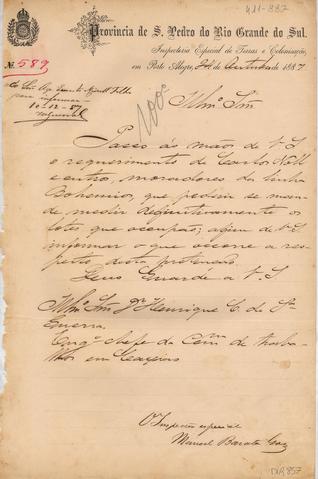 411-887
Provincia de S. Pedro do Rio Grande do Sul.
Inspectoria Especial de Terras e Colonisação,
em Porto Alegre, 24 de Outubro de 1887
Nº 589
Ao Snr Agr
para informar
10-12-87
Illmo Snr
Passo ás mãos de V. S.
o requerimento de Carlos
e outros, moradores da linha
Bohemios, que pedem se man-
de medir definitivamente os
lotes que occupão; afim de V. S.
informar o que occorre a res-
peito desta pretenção.
Deus Guarde a V. S.
Illmo Snr Dr Henrique C. de
Guerra.
Engº Chefe da Comm de traba-
lhos em Caxias
O Inspector especial
Manoel Barata Goes
DIR 857